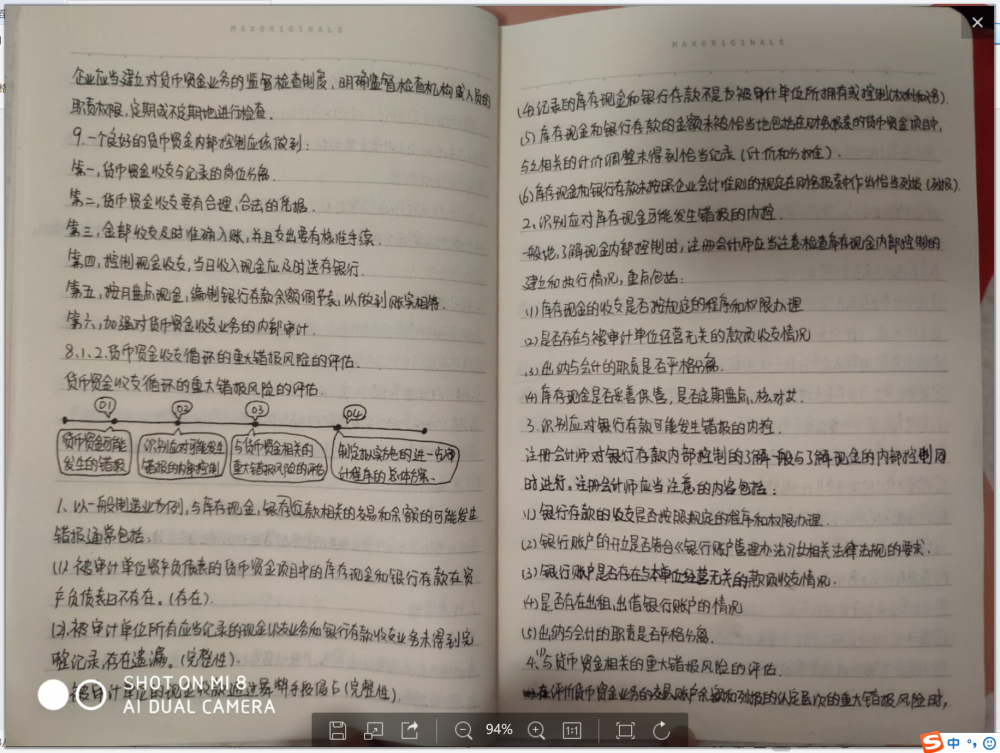 MAXORIGINALS
企业应当建立对货币资金业务的监督检查制度,明确监督检查机构或人员的
职责权限,定期或不定期地进行检查.
9.一个良好的货币资金内部控制应该做到:
第一,货币资金收支与记录的岗位分离.
第二,货币资金收支要有合理、合法的凭据.
第三,全部收支及时准确入账,并且支出要有核准手续.
第四,控制现金收支,当日收入现金应及时送存银行.
第五,按月盘点现金,编制银行存款余额调节表,以做到账实相符.
第六,加强对货币资金收支业务的内部审计.
8.1.2.货币资金收支循环的重大错报风险的评估.
货币资金收支循环的重大错报风险的评估.
01 02 03 04
货币资金可能
发生的错报
识别应对可能发生
错报的内部控制
与货币资金相关的
重大错报风险的评估
制定拟实施的进一步审
计程序的总体方案.
1、以一般制造业为例,与库存现金,银行存款相关的交易和余额的可能发生
错报通常包括:
(1).被审计单位资产负债表的货币资金项目中的库存现金和银行存款在资
产负债表日不存在。(存在).
(2).被审计单位所有应当记录的现金收支业务和银行存款收支业务未得到完
整记录,存在遗漏。(完整性).
审计单位的现金收 手段 (完整性).
SHOT ON MI 8
AI DUAL CAMERA
MAXORIGINALS
(4)记录的库存现金和银行存款不是为被审计单位所拥有或控制(权利和义务).
(5)库存现金和银行存款的金额未被恰当地包括在财务报表的货币资金项目中,
与之相关的计价调整未得到恰当记录(计价和分摊).
(6)库存现金和银行存款未按照企业会计准则的规定在财务报表中作出恰当列报(列报).
2、识别应对库存现金可能发生错报的内控.
一般地,了解现金内部控制时,注册会计师应当注意检查库存现金内部控制的
建立和执行情况,重点包括:
(1)库存现金的收支是否按规定的程序和权限办理
(2)是否存在与被审计单位经营无关的款项收支情况
(3)出纳与会计的职责是否严格分离.
(4)库存现金是否妥善保管,是否定期盘点、核对女.
3、识别应对银行存款可能发生错报的内控.
注册会计师对银行存款内部控制的了解一般与了解现金的内部控制同
时进行。注册会计师应当注意的内容包括:
(1)银行存款的收支是否按照规定的程序和权限办理.
(2)银行账户的开立是否符合《银行账户管理办法》以相关法律法规的要求.
(3)银行账户是否存在与本单位经营无关的款项收支情况.
(4)是否存在出租、出借银行账户的情况
(5)出纳与会计的职责是否严格分离.
4、(1)与货币资金相关的重大错报风险的评估.
在评价货币资金业务的交易、账户余额和列报的认定层次的重大错报风险时,
94%
1:1
中